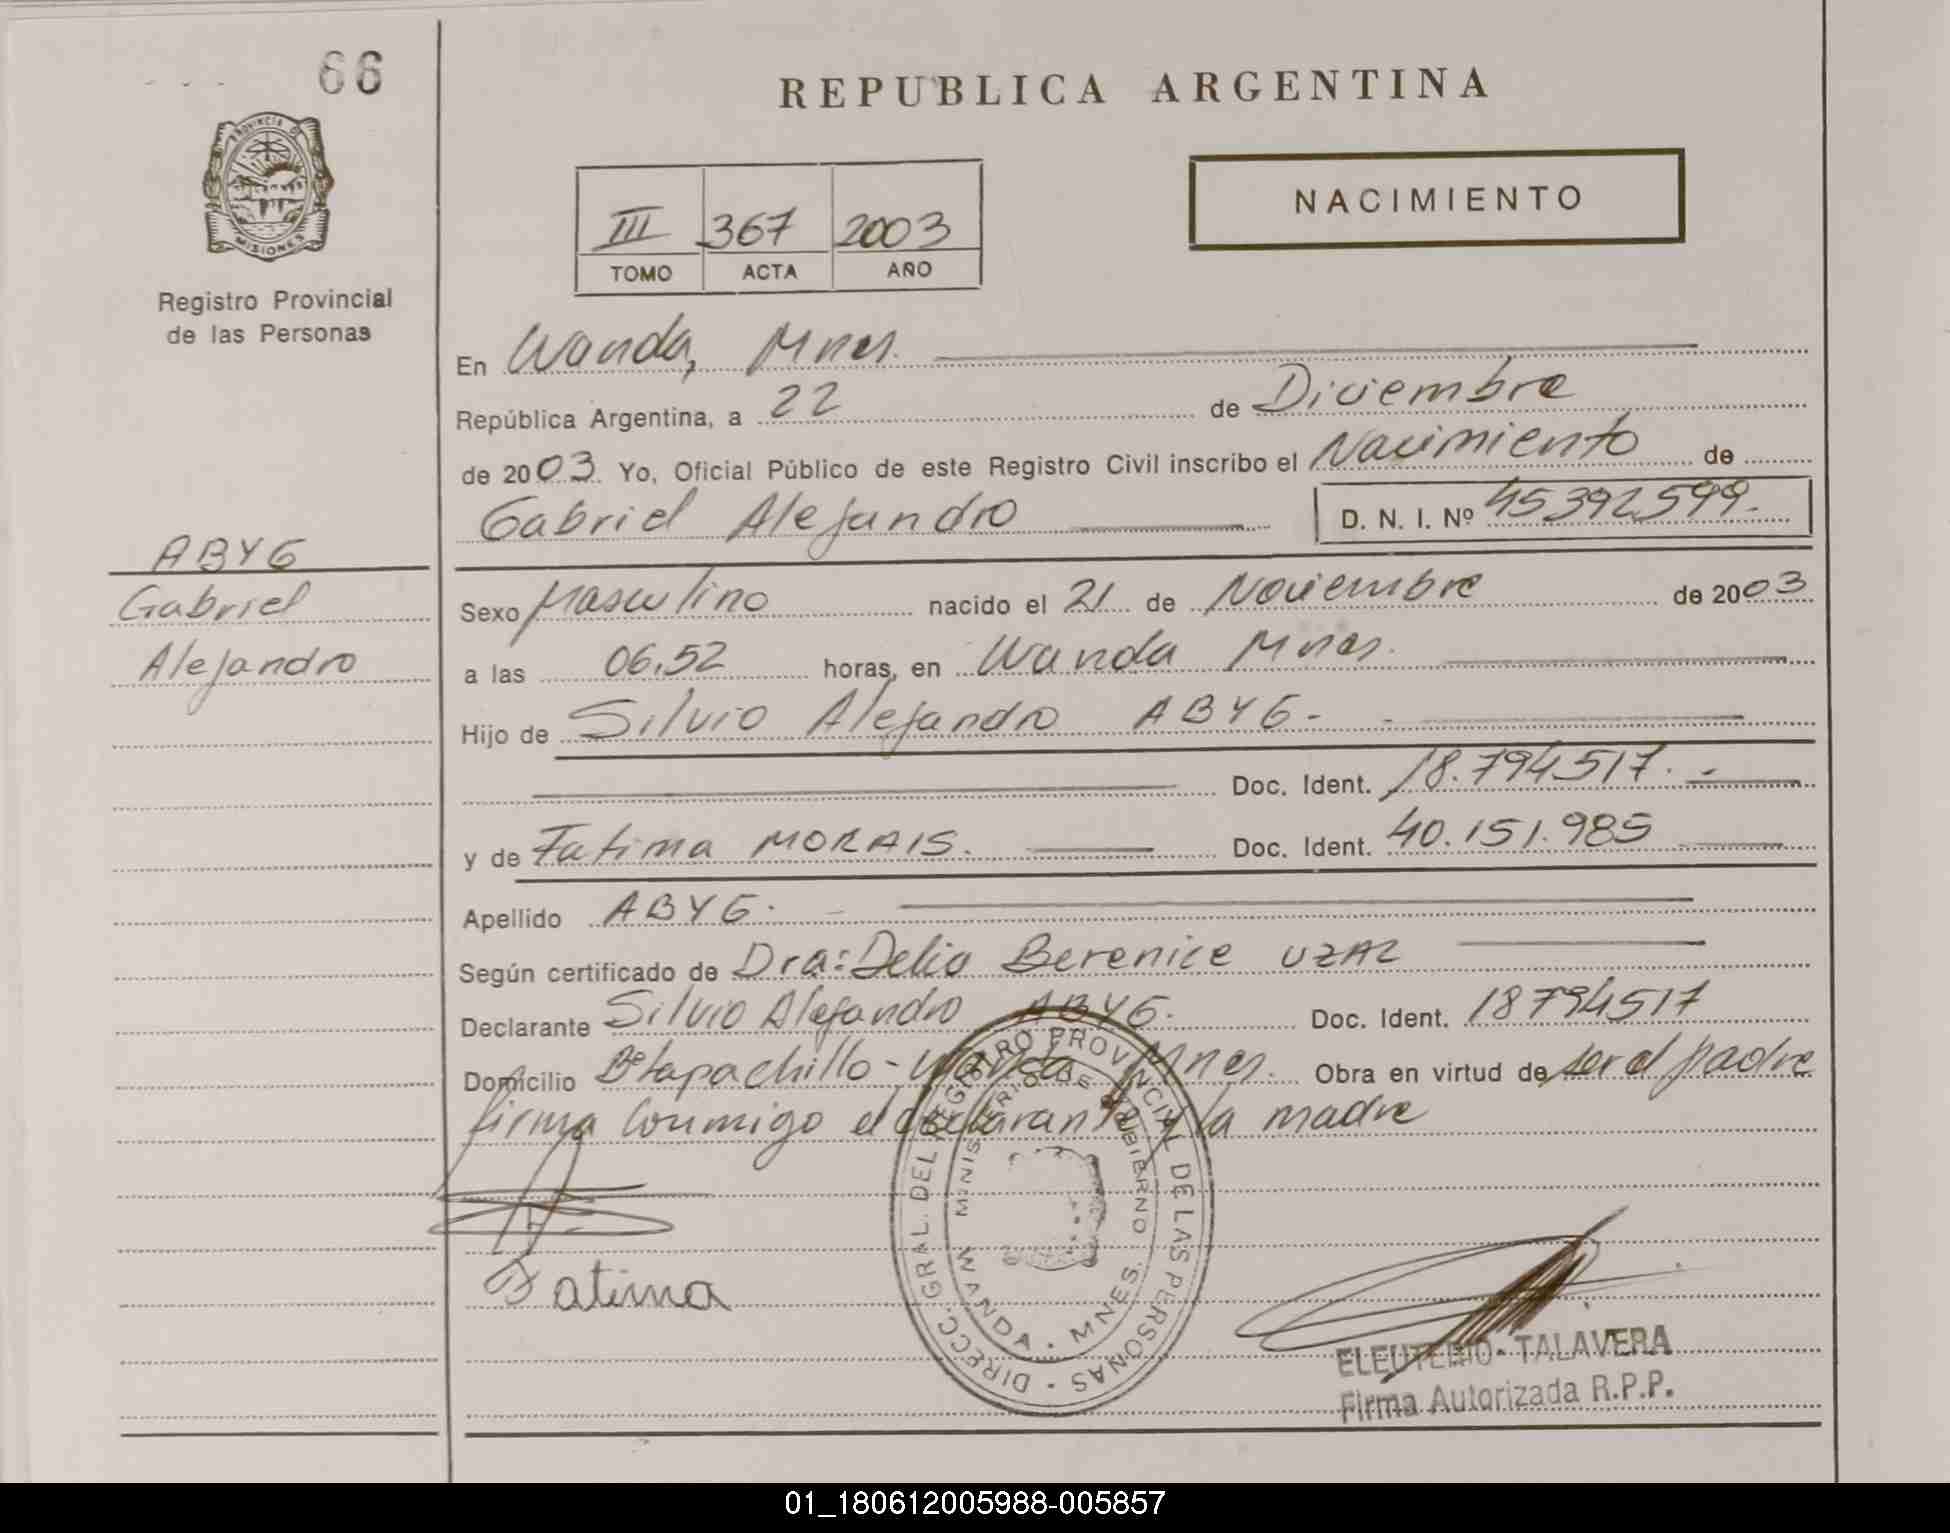 66
REPUBLICA ARGENTINA
PROVINCIA DE
MISIONES
Registro Provincial
de las Personas
III 367 2003
TOMO ACTA AÑO
NACIMIENTO
En Wanda, Mnes.
República Argentina, a 22 de Diciembre
de 2003. Yo, Oficial Público de este Registro Civil inscribo el Nacimiento de
Gabriel Alejandro D. N. I. Nº 45392599.-
ABYG
Gabriel
Alejandro
Sexo Masculino nacido el 21 de Noviembre de 2003
a las 06,52 horas, en Wanda Mnes.
Hijo de Silvio Alejandro ABYG.-
Doc. Ident. 18.794517.-
y de Fatima MORAIS. Doc. Ident. 40.151.985
Apellido ABYG.
Según certificado de Dra: Delia Berenice UZAL
Declarante Silvio Alejandro ABYG. Doc. Ident. 18794517
Domicilio Bº tapachillo - Wanda Mnes. Obra en virtud de ser el padre
firma conmigo el declarante y la madre
Fatima
DIRECC. GRAL. DEL REGISTRO PROVINCIAL DE LAS PERSONAS
MINISTERIO DE GOBIERNO
WANDA · MNES.
ELEUTERIO TALAVERA
Firma Autorizada R.P.P.
01_180612005988-005857